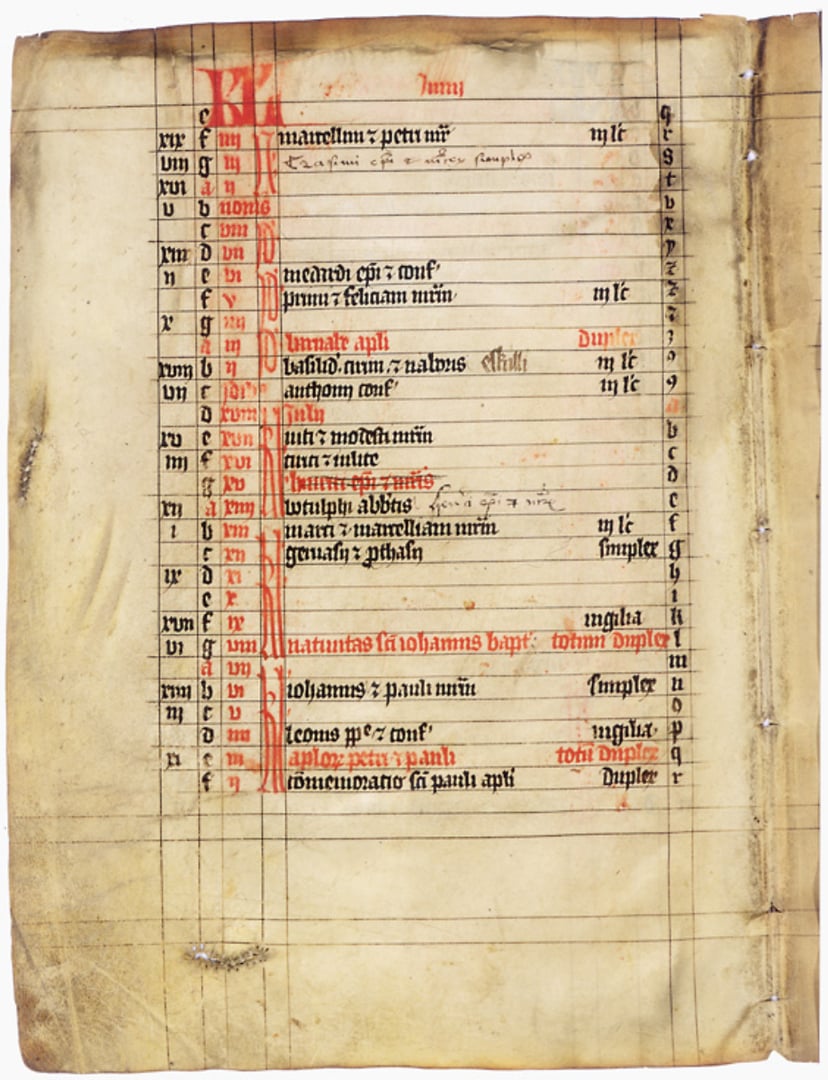 KL Junij
e q
xix f iiij N marcellini ⁊ petri mr̄ iij lc̄
viij g iij Erasmi ep̄i ⁊ simplex s
xvi a ij t
v b nonis v
c viij x
xiii d vii y
ij e vi medardi ep̄i ⁊ conf' z
f v primi ⁊ feliciani mrm̄ iij lc̄
x g iiij
a iij barnabe apl̄i duplex
xviij b ij basilid. cirini ⁊ naboris eskilli iij lc̄
vij c idus anthonij conf' iij lc̄ 9
d xviij Julij a
xv e xvii uiti ⁊ modesti mrm̄ b
iiij f xvi cirici ⁊ iulite c
g xv ep̄i ⁊ d
xij a xiiij botulphi abb̄tis ep̄i ⁊ e
i b xiii marci ⁊ marcelliani mrm̄ iij lc̄ f
c xij geruasij ⁊ ꝓthasij simplex g
ix d xi h
e x i
xvii f ix uigilia k
vi g viij natiuitas sc̄i iohannis bapt. totum duplex l
a vij m
xiiij b vi iohannis ⁊ pauli mrm̄ simplex n
iij c v o
d iiij leonis pp̄e ⁊ conf' uigilia p
xi e iij aplorꝝ petri ⁊ pauli totū duplex q
f ij cōmemoratio sc̄i pauli apl̄i duplex r